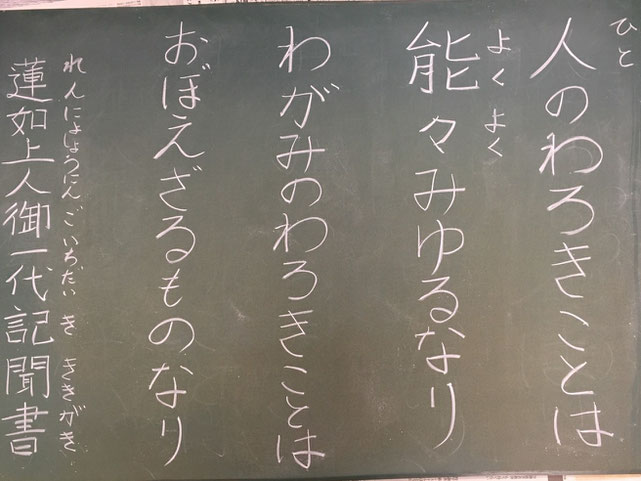 ひと
人のわろきことは
よくよく
能々みゆるなり
わがみのわろきことは
おぼえざるものなり
れんにょしょうにんごいちだいきききがき
蓮如上人御一代記聞書